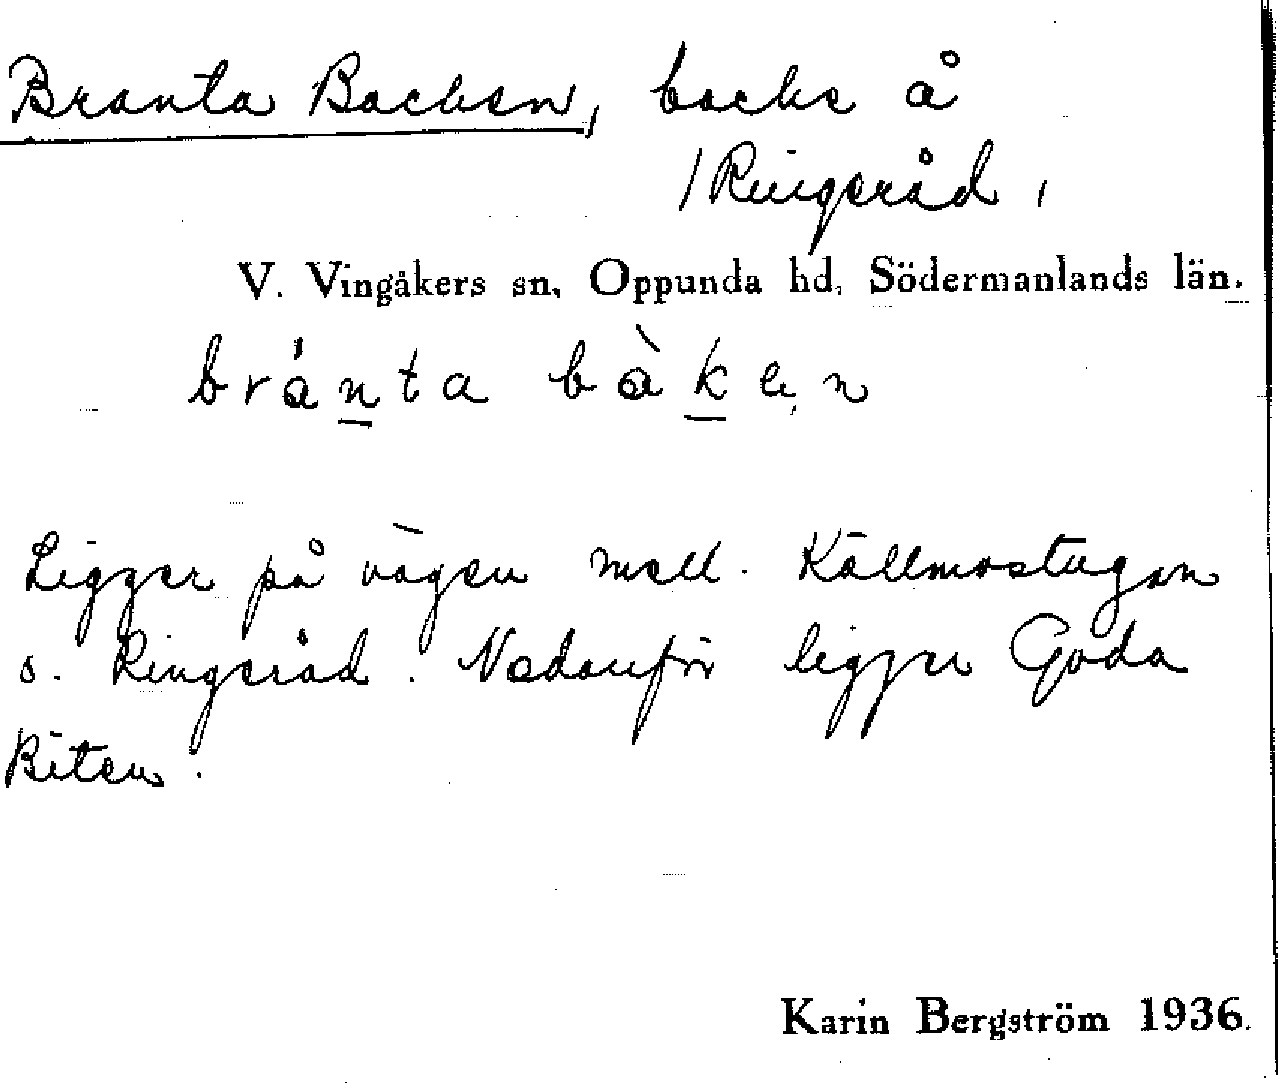 Branta Backen, backe å
/Ringeråd,
V. Vingåkers sn, Oppunda hd, Södermanlands län.
bránta bàken
Ligger på vägen mell. Källmostugan
o. Ringeråd. Nedanför ligger Goda
Biten.
Karin Bergström 1936.